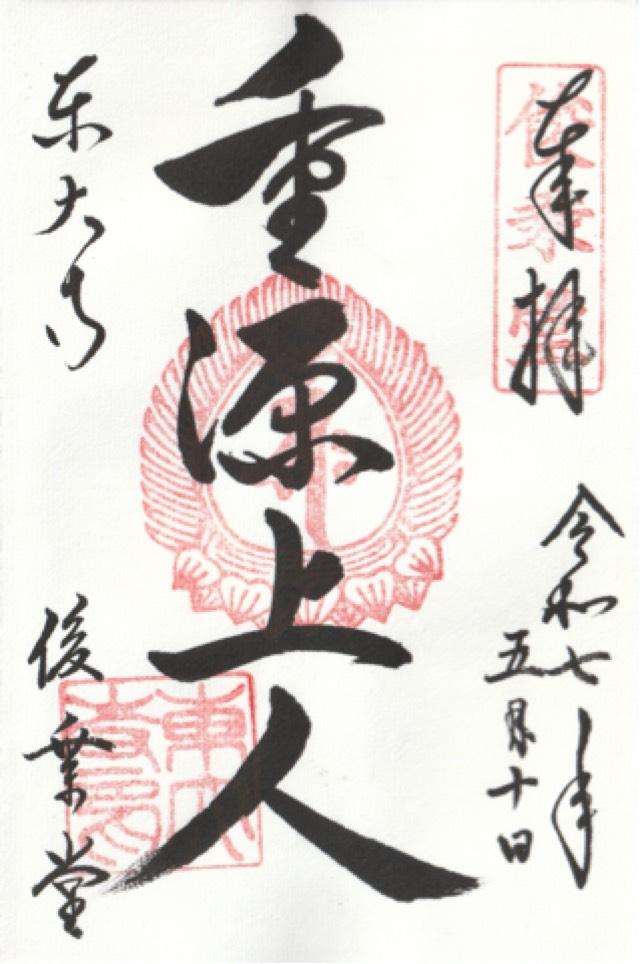 奉拝
俊乗堂
令和七年
五月十日
重源上人
東大寺
俊乗堂
東大寺印